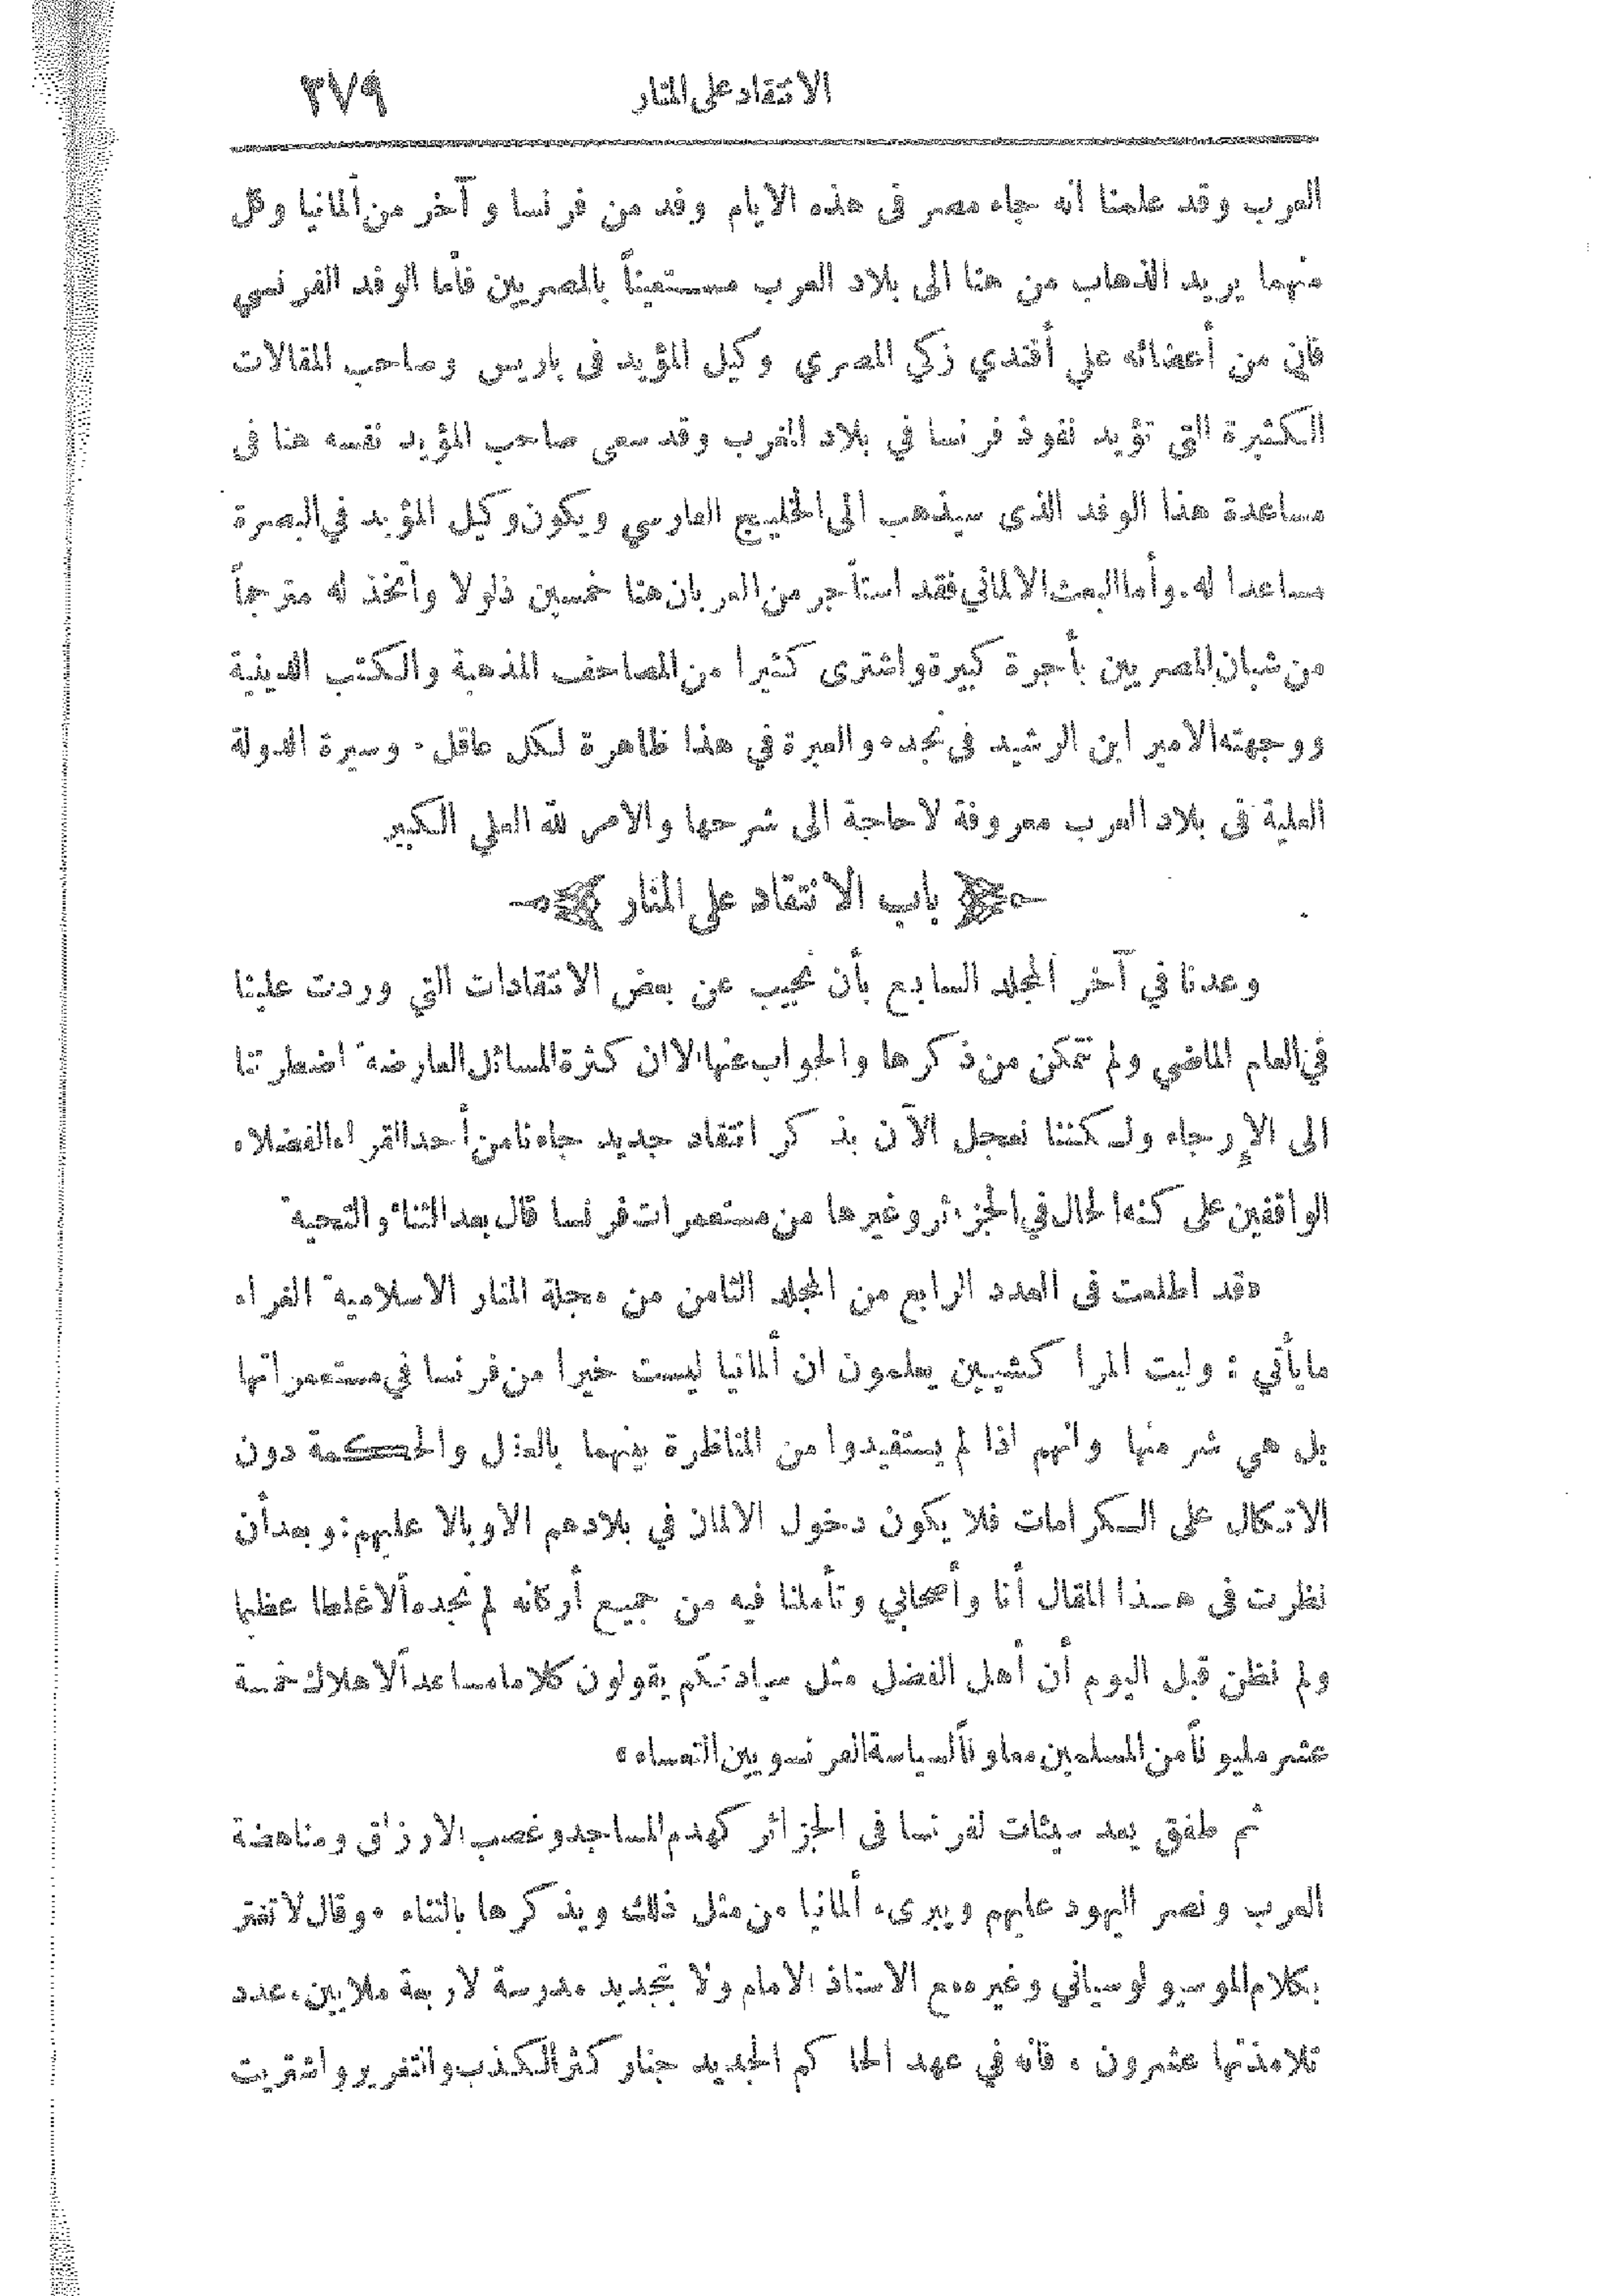 الانتقاد على المنار ٣٧٩
العرب وقد علمنا أنه جاء مصر فى هذه الايام وفد من فرنسا وآخر من ألمانيا وكل
منهما يريد الذهاب من هنا الى بلاد العرب مستعيناً بالمصريين فأما الوفد الفرنسي
فان من أعضائه علي أفندي زكي المصري وكيل المؤيد فى باريس وصاحب المقالات
الكثيرة التى تؤيد نفوذ فرنسا في بلاد المغرب وقد سعى صاحب المؤيد نفسه هنا فى
مساعدة هذا الوفد الذى سيذهب الى الخليج الفارسي ويكون وكيل المؤيد في البصرة
مساعدا له. وأما البعث الالماني فقد استأجر من العربان هنا خمسين ذلولا واتخذ له مترجماً
من شبان المصريين بأجرة كبيرة واشترى كثيرا من المصاحف المذهبة والكتب الدينية
ووجهته الامير ابن الرشيد فى نجد. والعبرة في هذا ظاهرة لكل عاقل. وسيرة الدولة
العلية فى بلاد العرب معروفة لا حاجة الى شرحها والامر لله العلي الكبير
باب الانتقاد على المنار
وعدنا في آخر المجلد السابع بأن نجيب عن بعض الانتقادات التي وردت علينا
في العام الماضي ولم نتمكن من ذكرها والجواب عنها الا ان كثرة المسائل العارضة اضطرتنا
الى الإرجاء ولكننا نعجل الآن بذكر انتقاد جديد جاءنا من أحد القراء الفضلاء
الواقفين على كنه الحال في الجزائر وغيرها من مستعمرات فرنسا قال بعد الثناء والتحية
«قد اطلعت فى العدد الرابع من المجلد الثامن من مجلة المنار الاسلامية الغراء
ما يأتي : وليت المراكشيين يعلمون ان ألمانيا ليست خيرا من فرنسا في مستعمراتها
بل هي شر منها وانهم اذا لم يستفيدوا من المناظرة بينهما بالعقل والحكمة دون
الاتكال على الكرامات فلا يكون دخول الالمان في بلادهم الا وبالا عليهم: وبعد أن
نظرت فى هذا المقال أنا وأصحابي وتأملنا فيه من جميع أركانه لم نجده ألا غلطا عظيما
ولم نظن قبل اليوم أن أهل الفضل مثل سيادتكم يقولون كلاما مساعداً لاهلاك خمسة
عشر مليوناً من المسلمين معاوناً لسياسة الفرنسويين التعساء»
ثم طفق يعد سيئات لفرنسا فى الجزائر كهدم المساجد وغصب الارزاق ومناهضة
العرب ونصر اليهود عليهم ويبرىء ألمانيا من مثل ذلك ويذكرها بالثناء. وقال لا تغتر
بكلام الموسيو لوسياني وغيره مع الاستاذ الامام ولا بتجديد مدرسة لاربعة ملايين، عدد
تلامذتها عشرون، فانه في عهد الحاكم الجديد جنار كثر الكذب والتغرير واشتريت